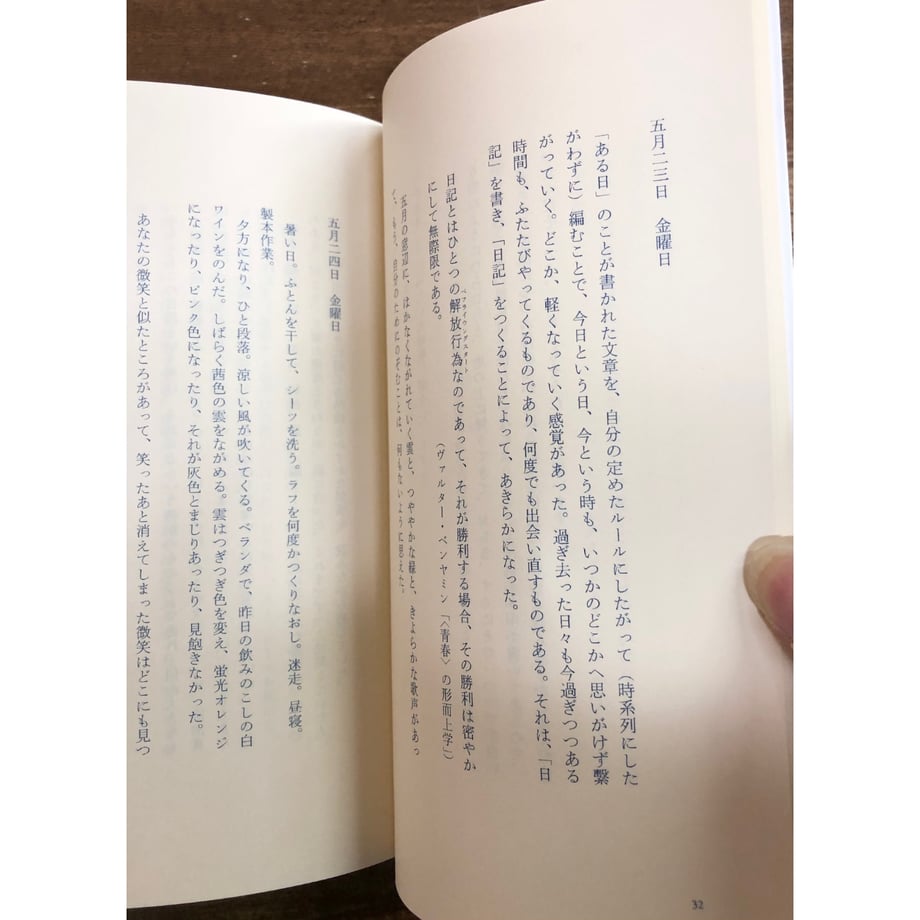 五月二三日 金曜日
「ある日」のことが書かれた文章を、自分の定めたルールにしたがって（時系列にした
がわずに）編むことで、今日という日、今という時も、いつかのどこかへ思いがけず繋
がっていく。どこか、軽くなっていく感覚があった。過ぎ去った日々も今過ぎつつある
時間も、ふたたびやってくるものであり、何度でも出会い直すものである。それは、「日
記」を書き、「日記」をつくることによって、あきらかになった。
日記とはひとつの解放行為なのであって、それが勝利する場合、その勝利は密やか
ベフライウングスタート
にして無際限である。
（ヴァルター・ベンヤミン「〈青春〉の形而上学」）
五月の窓辺に、はかなくながれていく雲と、つややかな緑と、きよらかな歌声があっ
て、もう、自分のためにのぞむことは、何もないように思えた。
五月二四日 金曜日
暑い日。ふとんを干して、シーツを洗う。ラフを何度かつくりなおし。迷走。昼寝。
製本作業。
夕方になり、ひと段落。涼しい風が吹いてくる。ベランダで、昨日の飲みのこしの白
ワインをのんだ。しばらく茜色の雲をながめる。雲はつぎつぎ色を変え、蛍光オレンジ
になったり、ピンク色になったり、それが灰色とまじりあったり、見飽きなかった。
あなたの微笑と似たところがあって、笑ったあと消えてしまった微笑はどこにも見つ
32